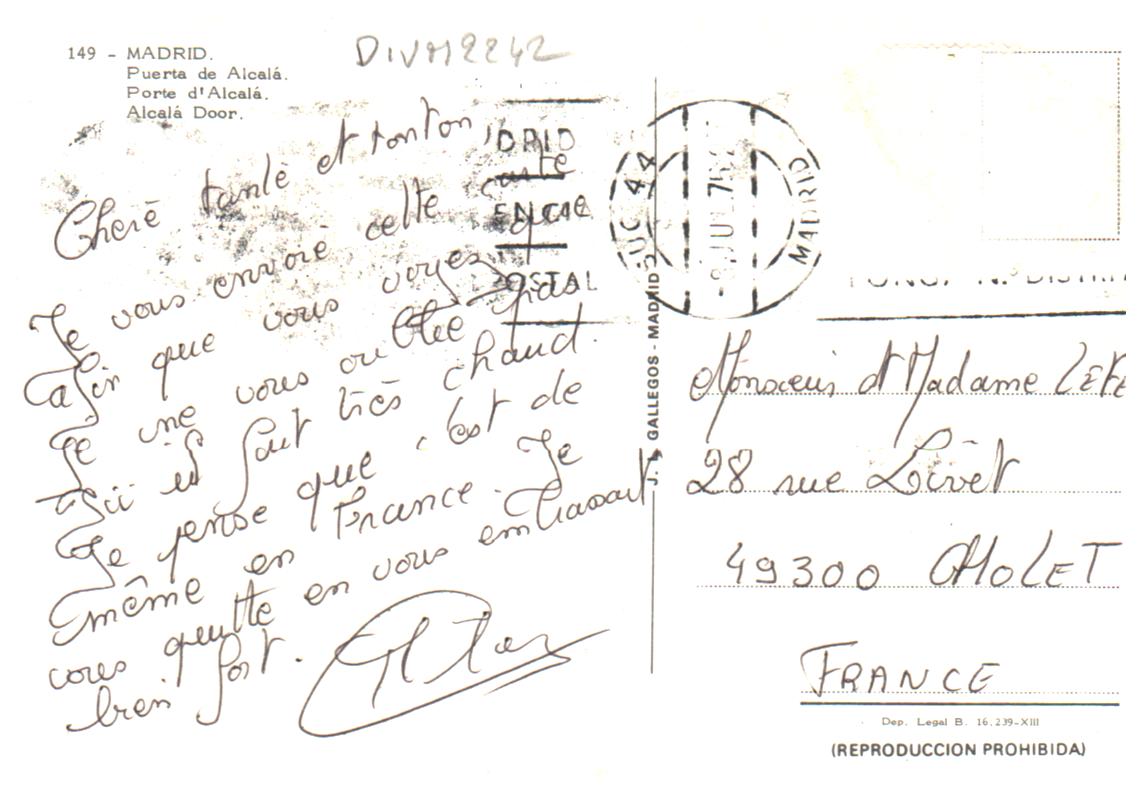 149 - MADRID.
Puerta de Alcalá.
Porte d'Alcalá.
Alcalá Door.
DIVM2242
Cherè tantè et tonton
Je vous envoiè cette carte
afin que vous voyes que
Je ne vous oublie pas
Ici il fait très chaud.
Je pense que c'est de
même en France. Je
vous quitte en vous embrassant
bien fort.
DRID
OSTAL
SUC 44
75
MADRID
J. GALLEGOS - MADRID
Monsieur et Madame
28 rue Livet
49300 CHOLET
FRANCE
Dep. Legal B. 16.239-XIII
(REPRODUCCION PROHIBIDA)